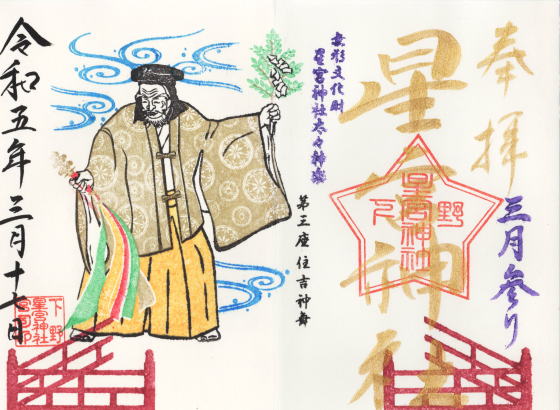 奉拝
三月参り
星宮神社
下野
星宮神社
無形文化財
星宮神社太々神楽
第三座 住吉神舞
令和五年三月十七日
下野
星宮神社
宮司印